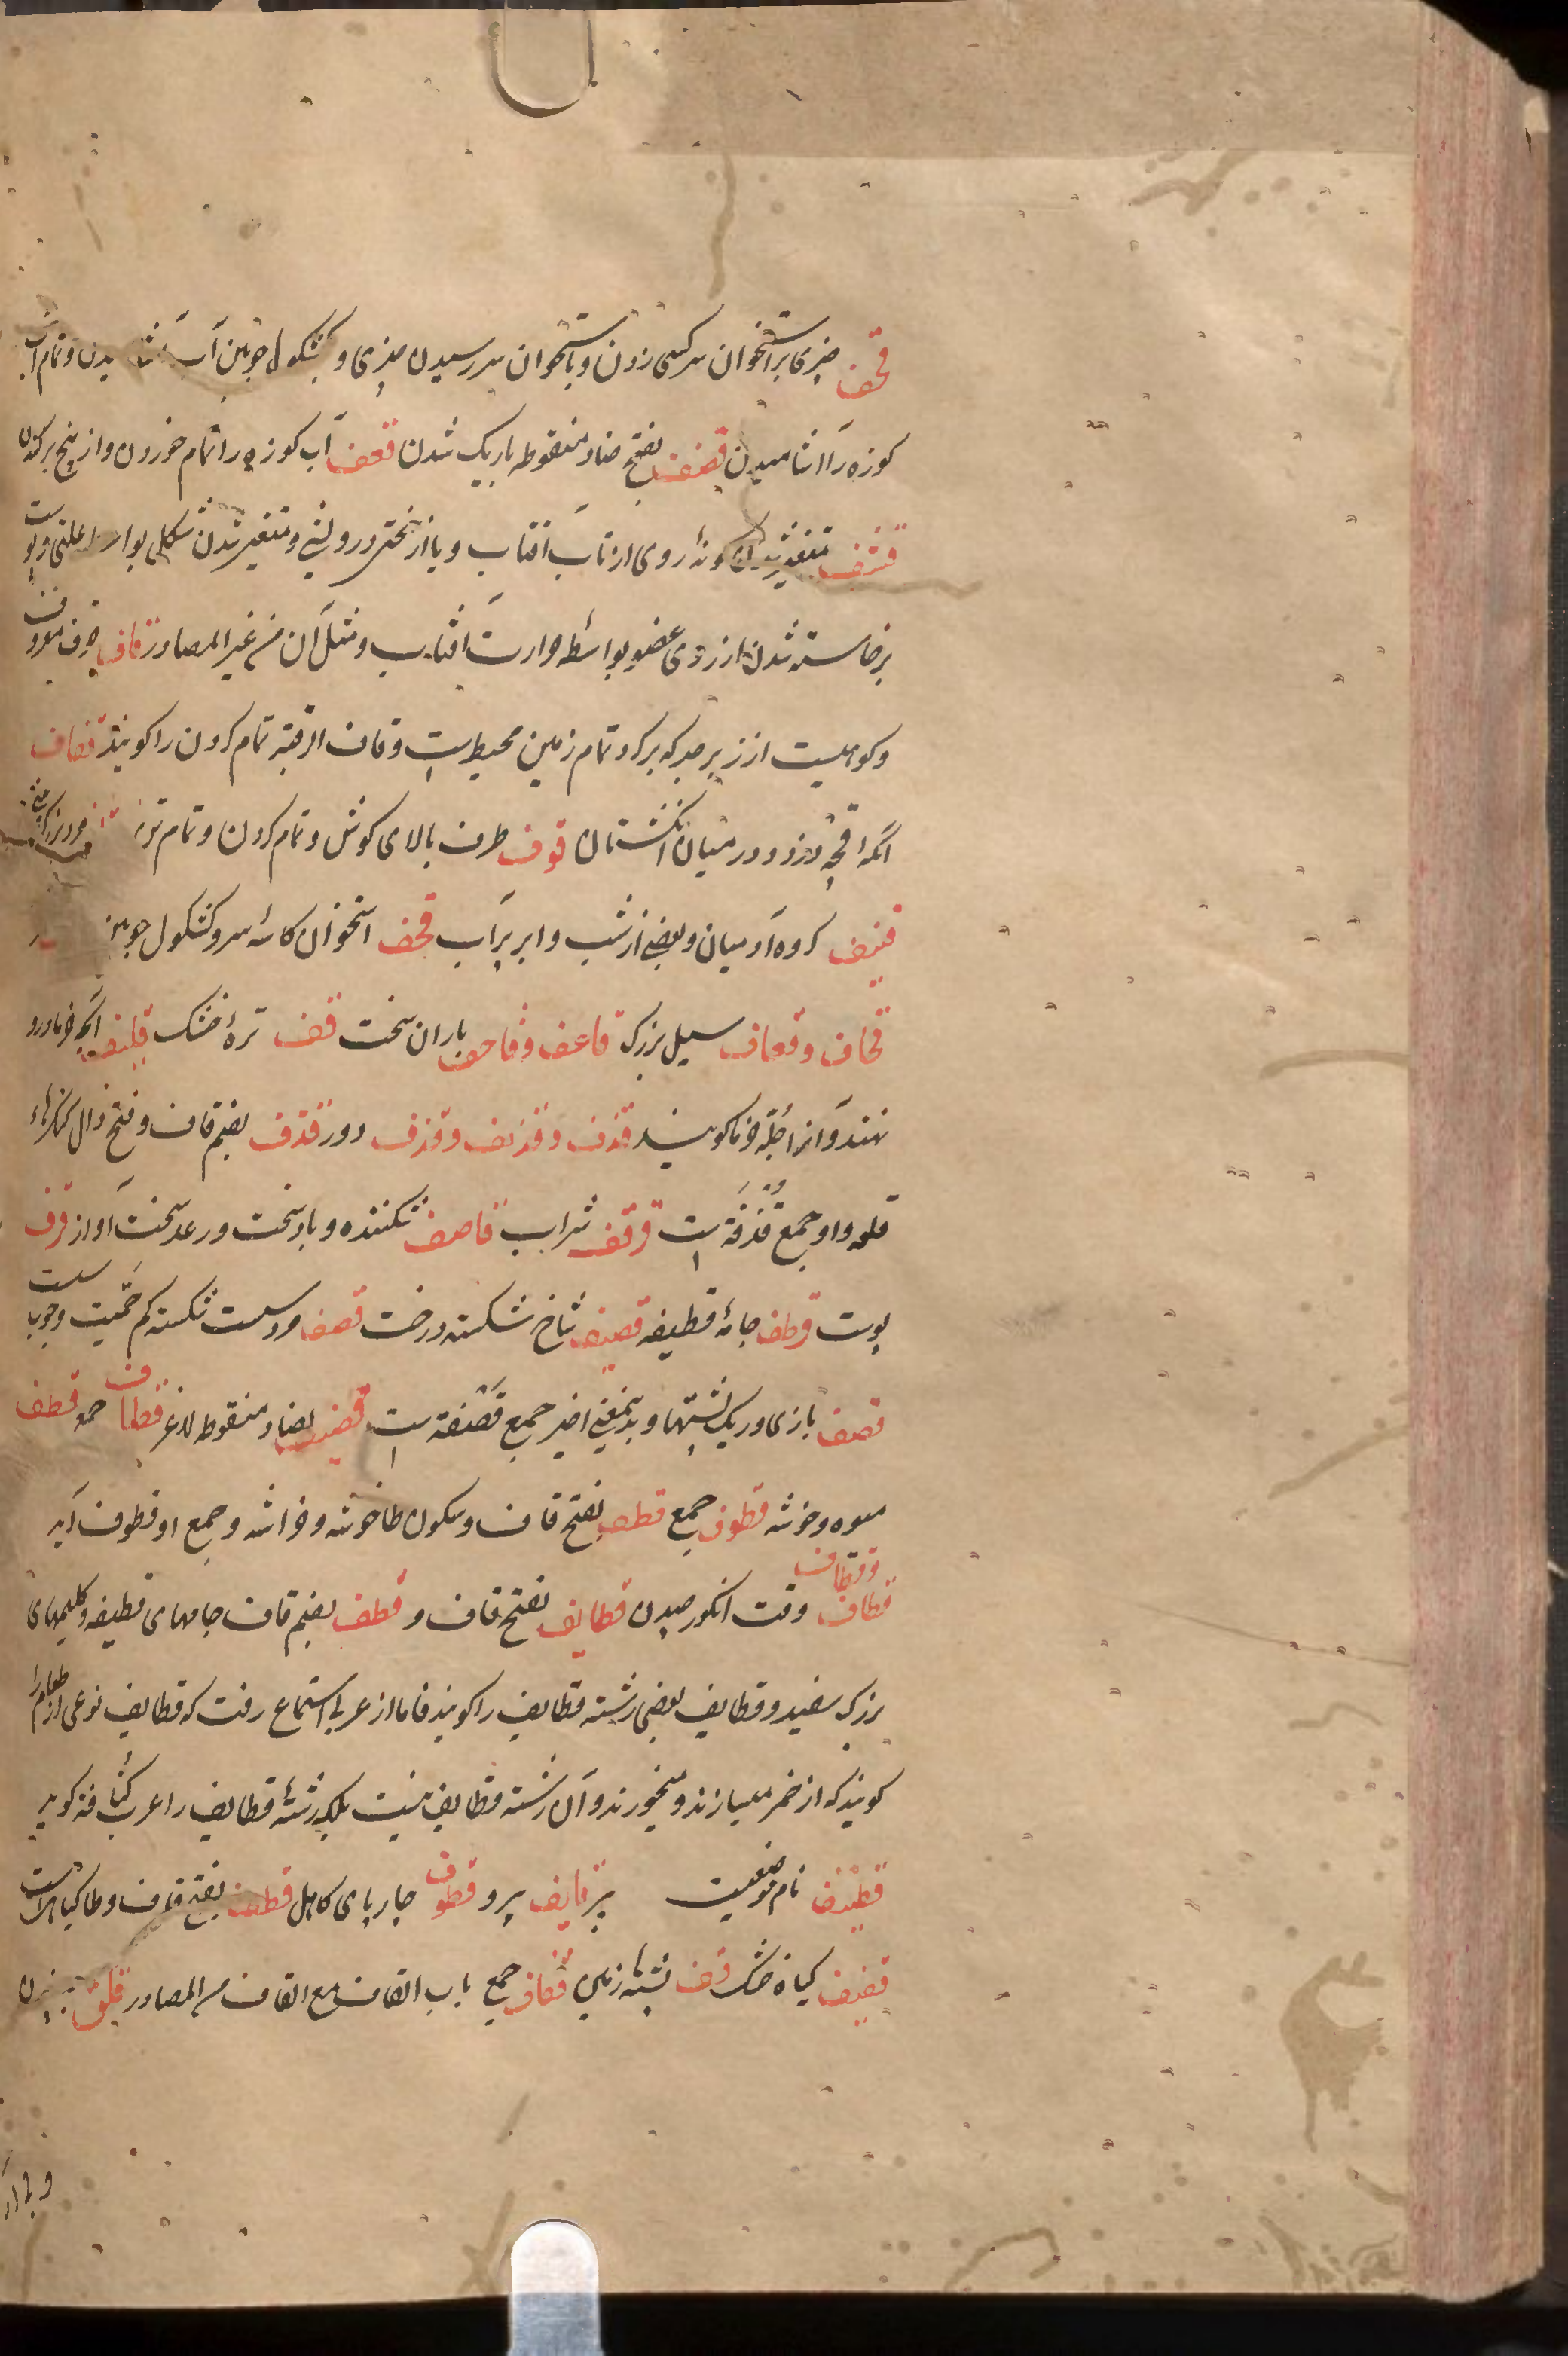 قحف چیزی بر استخوان سر کسی زدن و باستخوان سر رسیدن چیزی و بکشکول چوبین آب آشامیدن و تمام آب
کوزه را آشامیدن قضف بفتح ضاد منقوطه باریک شدن قعف آب کوزه را تمام خوردن و از بیخ برکندن
قشف متغیر شدن گونهٔ روی از تاب آفتاب و یا از سختی درویشی و متغیر شدن شکل بواسطهٔ علتی و پوست
برخاسته شدن از روی عضو بواسطه حرارت آفتاب و مثل آن من غیر المصادر قاف حرف معروف
و کوهیست از زبرجد که برگرد تمام زمین محیطست و قاف الرقبه تمام گردن را گویند قفاف
آنکه اقچه دزدد در میان انگشتان قوف طرف بالای گوش و تمام گردن و تمام
قنیف گروه آدمیان و بعضی از شب و ابر پر آب قحف استخوان کاسهٔ سر و کشکول چوبین
قحاف و قعاف سیل بزرگ قاعف و قاحف باران سخت قف ترهٔ خشک قلیف آنچه خرما درو
نهند و آنرا جلّه خرما گویند قذف و قذیف و قذف دور قذف بضم قاف و فتح ذال کنگرهاء
قلعه و او جمع قُذْفَة است قرقف شراب قاصف شکننده و باد سخت و رعد سخت آواز قرف
پوست قرطف جامهٔ قطیفه قصیف شاخ شکسته درخت قصف مردیست شکسته کم حمیت و چوب سست
قصف بازی و ریک پشتها و بدین معنی اخیر جمع قَصْفَة است قضیف بضاد منقوطه لاغر قطاف جمع قطف
میوه و خوشه قطوف جمع قطف بفتح قاف و سکون طا خوشه و خراشه و جمع او قطوف آید
قطاف و قطاف وقت انگور چیدن قطایف بفتح قاف و قطف بضم قاف جامهای قطیفه و گلیمهای
بزرگ سفید و قطایف بعضی رشته قطایف را گویند فاما از عربی استماع رفت که قطایف نوعی از طعام را
گویند که از خمیر میسازند و میخورند و آن رشته قطایف نیست بلکه رشتهٔ قطایف را عرب کنافه گوید
قطیف نام موضعیست پیرو قطوف چارپای کاهل قطف بفتح قاف و طا گیاهیست
قفیف گیاه خشک قف پشتهٔ زمین قفاف جمع باب القاف مع القاف من المصادر قلق